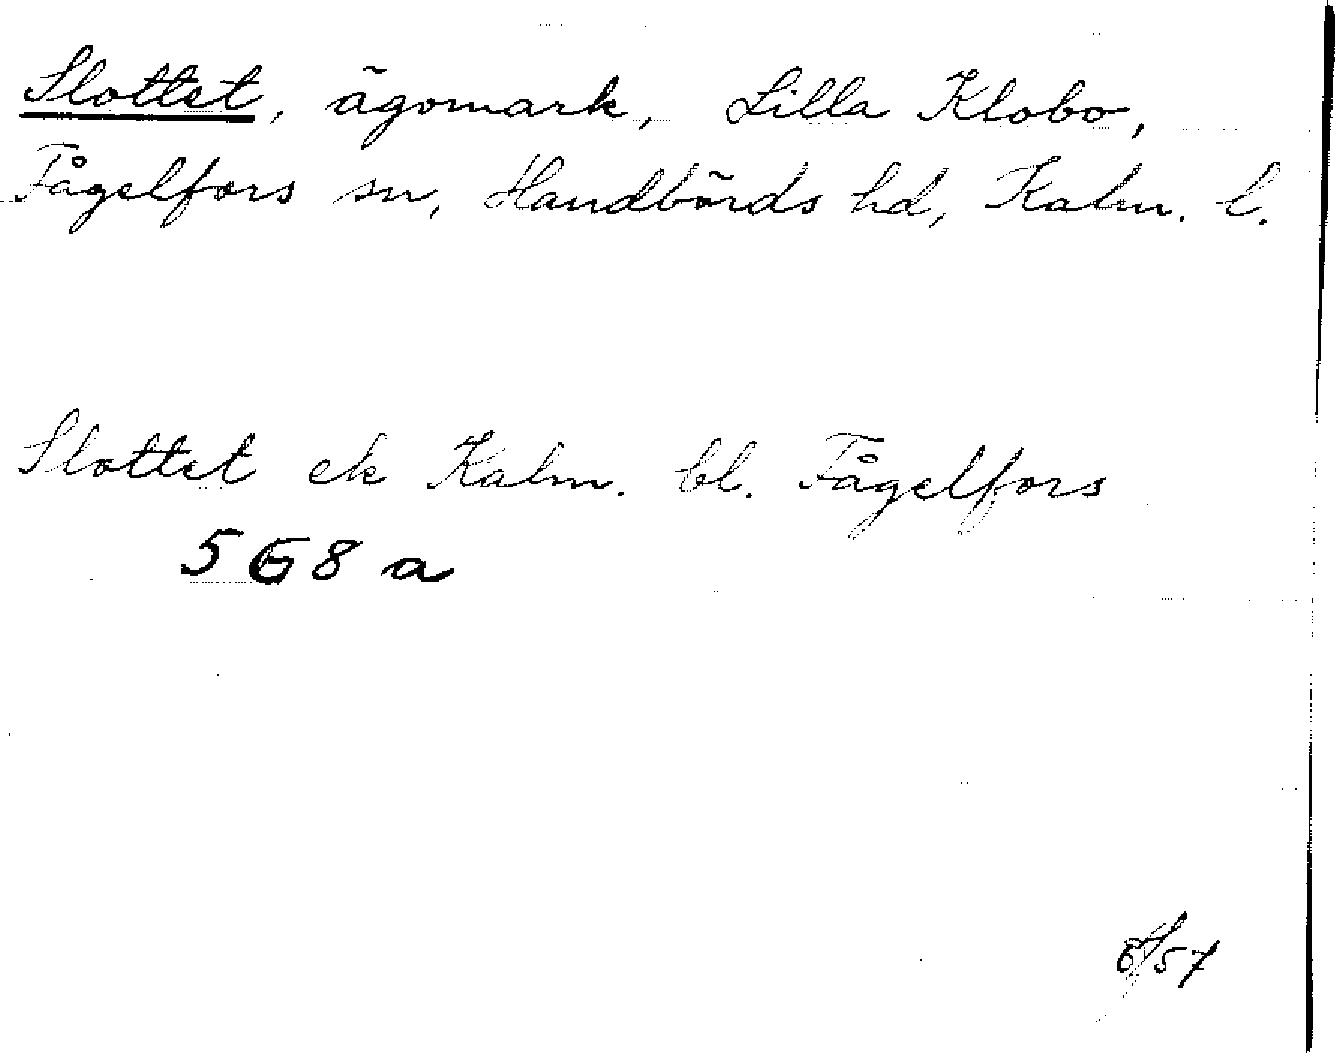 Slottet, ägomark, Lilla Klobo,
Fågelfors sn, Handbörds hd, Kalm. l.
Slottet ek Kalm. bl. Fågelfors
568 a